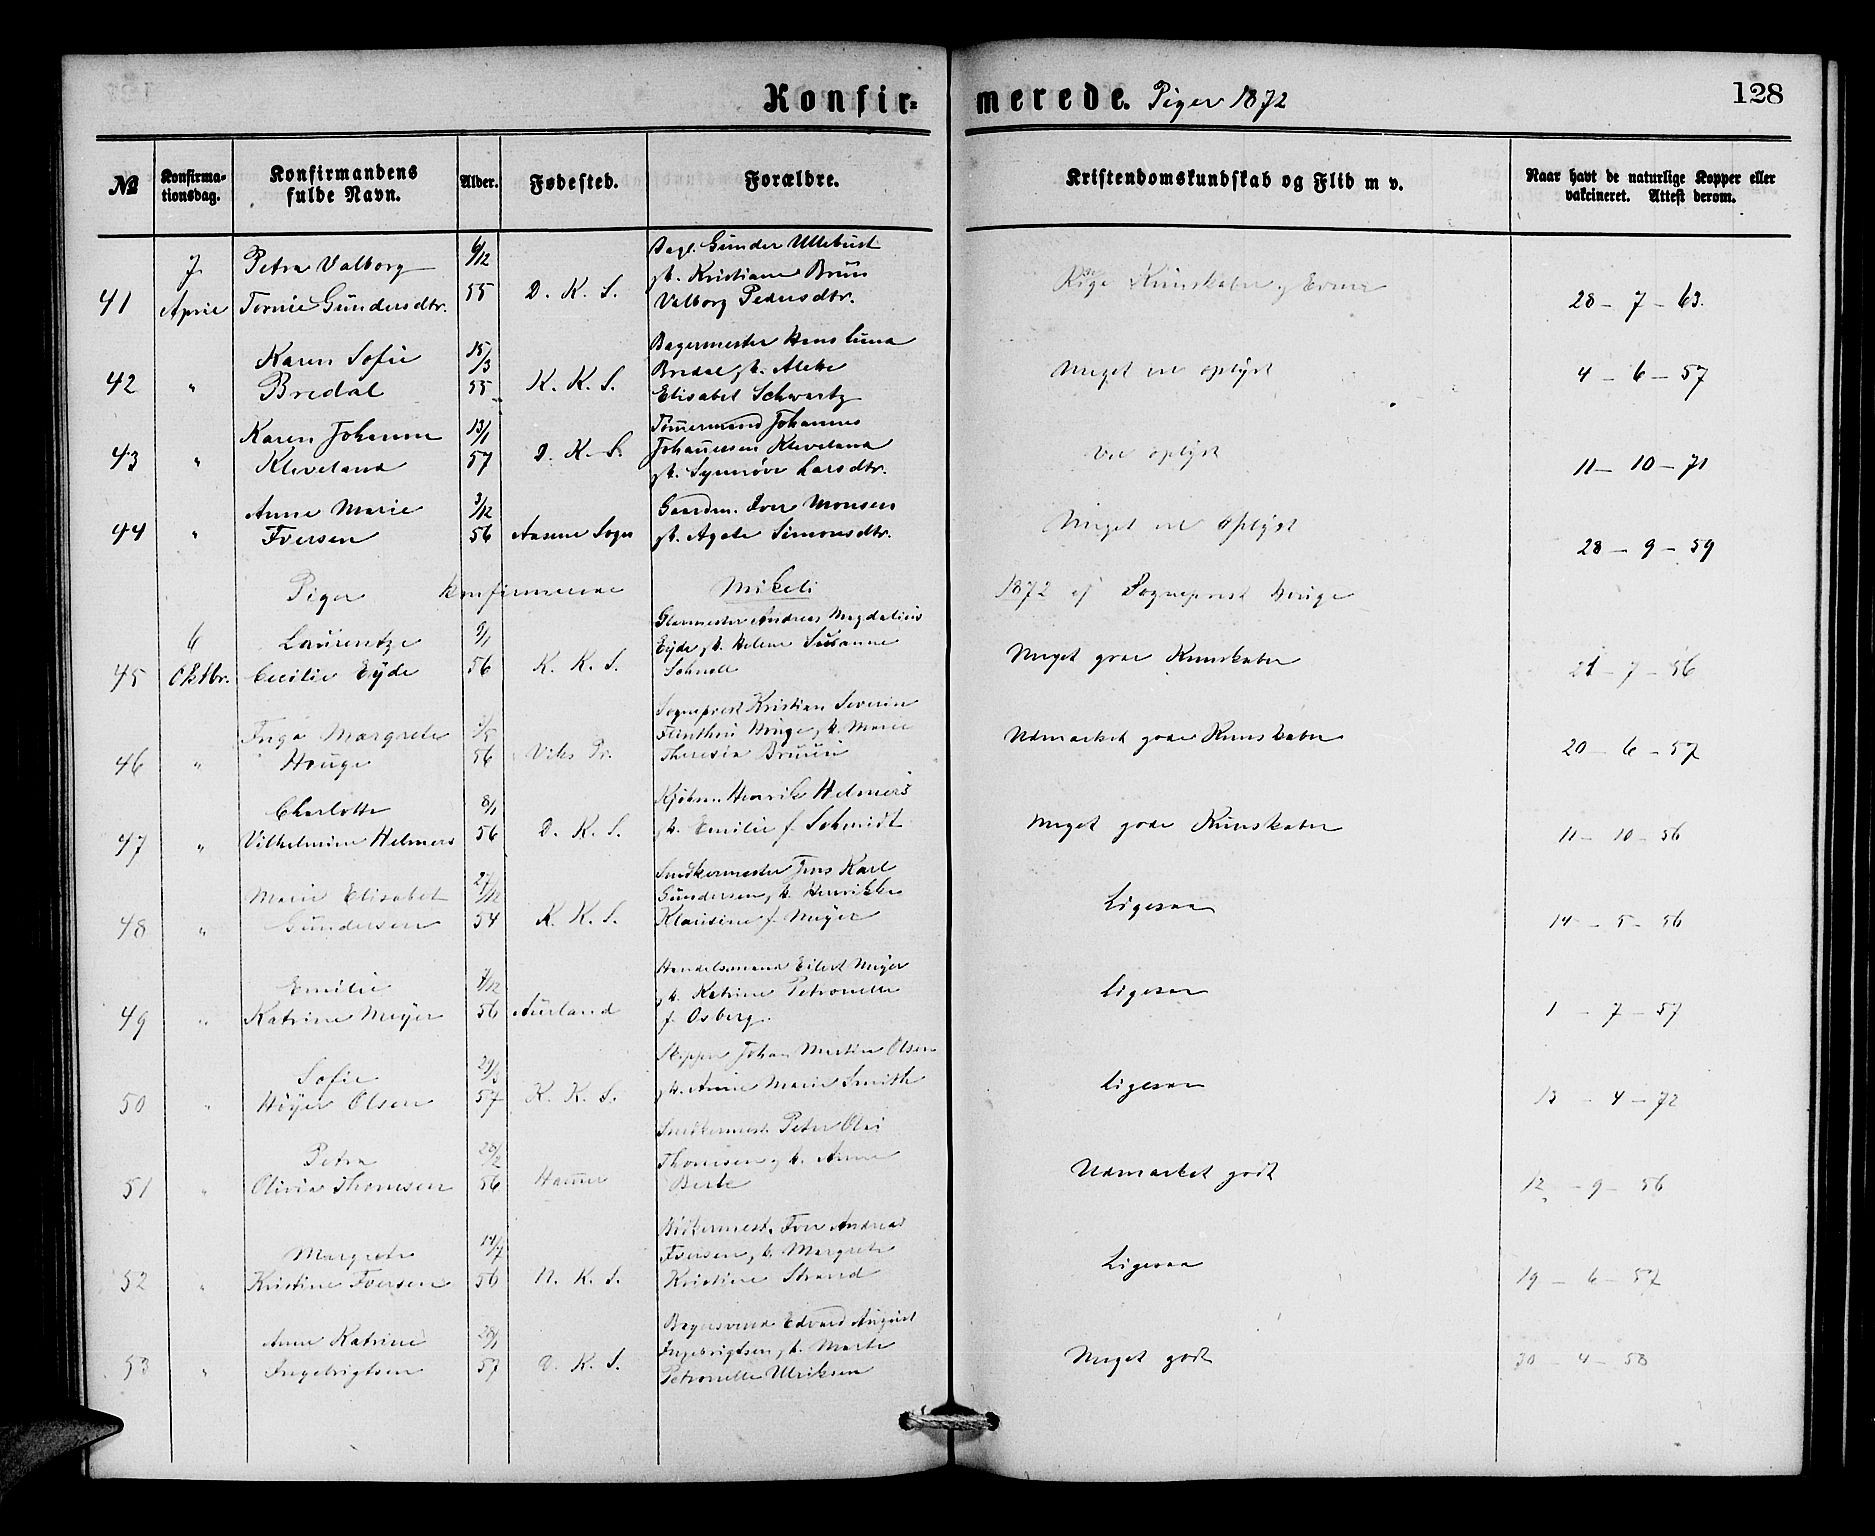 Konfir=
merede. Piger 1872
128
№
Konfirma-
tionsdag.
Konfirmandens
fulde Navn.
Alder.
Fødested.
Forældre.
Kristendomskundskab og Flid m v.
Naar havt de naturlige Kopper eller
vakcineret. Attest derom.
41
7
April
Petra Valborg
Tornie Gundersdtr.
6/12
55
D. K. S.
Dagl. Gunder Ullebust
Kristiane Brun
Valborg Pedersdtr.
28 - 7 - 63.
42
"
Karen Sofie
Bredal
15/3
55
K. K. S.
Bagermester Hans
Bredal
Elisabet Schwartz
Meget vel oplyst
4 - 6 - 57
43
"
Karen Johanne
Kleveland
13/1
57
D. K. S.
Tømermand Johannes
Johannesen Kleveland
Synnøve Larsdtr.
Vel oplyst
11 - 10 - 71
44
"
Anne Marie
Iversen
3/12
56
Aasene Sogn
Gaardm. Iver Monsen
Agate Simonsdtr.
Meget vel oplyst
28 - 9 - 59
Piger konfirmerede Mikeli 1872 af Sogneprest Houge
45
6
Oktbr.
Laurentze
Cecilie Eyde
9/1
56
K. K. S.
Glarmester Andreas Magdalius
Eyde Helene Susanne
Schnell
Meget gode Kunskaber
21 - 7 - 56
46
"
Inga Margrete
Houge
56
Viks Pr.
Sogneprest Kristian Severin
Flinthou Houge Marie
Theresia Bruun
Udmærket gode Kunskaber
20 - 6 - 57
47
"
Charlotte
Vilhelmine Helmers
8/1
56
D. K. S.
Kjøbm. Henrik Helmers
Emilie f. Schmidt
Meget gode Kunskaber
11 - 10 - 56
48
"
Marie Elisabet
Gundersen
27/12
54
K. K. S.
Snedkermester Jens Karl
Gundersen Henrikke
Klausine f. Meyer
Ligesaa
14 - 5 - 56
49
"
Emilie
Katrine Meyer
56
Aurland
Handelsmand Eilert Meyer
Katrine Petronelle
f. Osberg.
Ligesaa
1 - 7 - 57
50
"
Sofie
Høyer Olsen
57
K. K. S.
Skipper Johan Martin Olsen
Anne Marie Smith
Ligesaa
13 - 4 - 72
51
"
Petra
Olivia Thomsen
56
Hammer
Snedkermest. Peter Olai
Thomsen Anne
Berle
Udmærket godt
12 - 9 - 56
52
"
Margrete
Kristine Iversen
14/7
56
N. K. S.
Bødkermest. Iver Andreas
Iversen Margrete
Kristine Strand
Ligesaa
19 - 6 - 57
53
"
Anne Katrine
Ingebrigtsen
57
D. K. S.
Bagersvend Edvard August
Ingebrigtsen Marte
Petronelle Ulriksen
Meget godt
30 - 4 - 58